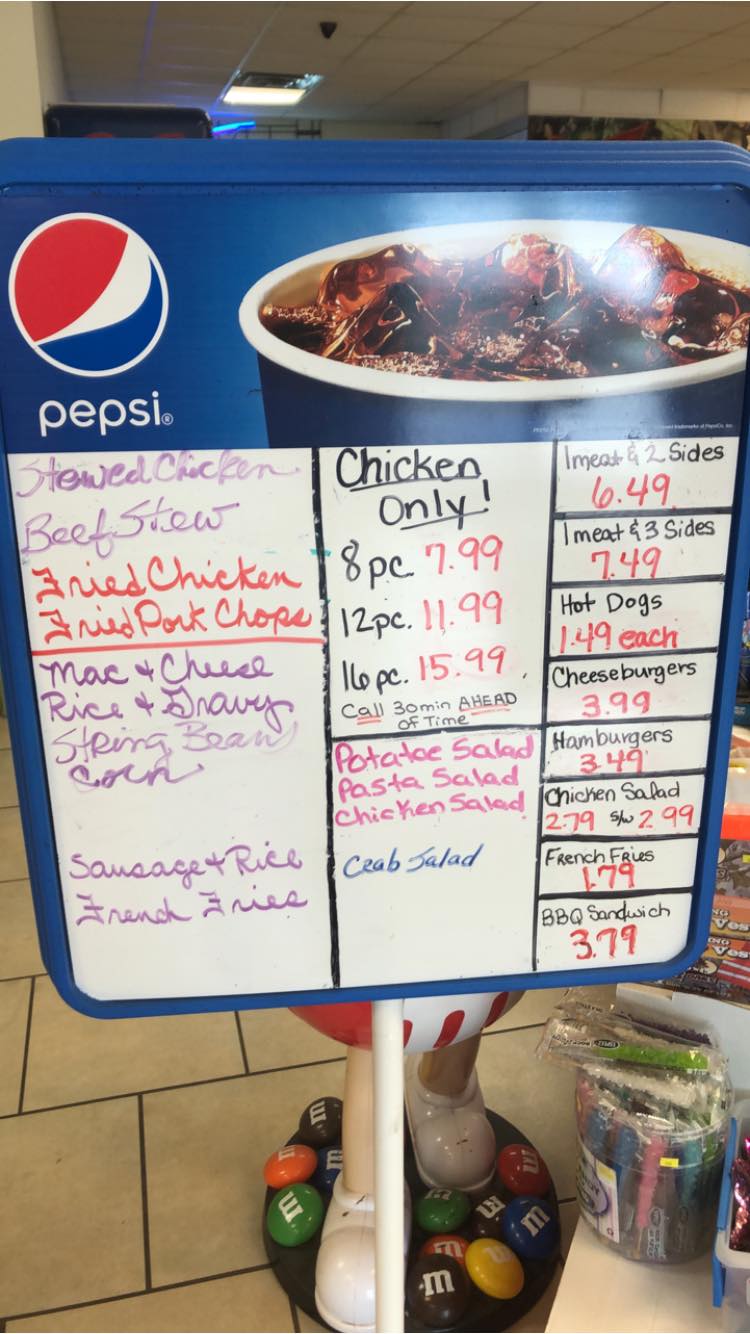 pepsi®
Stewed Chicken
Beef Stew
Fried Chicken
Fried Pork Chops
Mac + Cheese
Rice + Gravy
String Bean
Corn
Sausage + Rice
French Fries
Chicken
Only!
8 pc. 7.99
12pc. 11.99
16 pc. 15.99
Call 30min AHEAD
of Time
Potatoe Salad
Pasta Salad
Chicken Salad
Crab Salad
1 meat & 2 Sides
6.49
1 meat & 3 Sides
7.49
Hot Dogs
1.49 each
Cheeseburgers
3.99
Hamburgers
3.49
Chicken Salad
2.79 s/w 2.99
French Fries
1.79
BBQ Sandwich
3.79
m
m
m
m
m
m
m
m
m
m